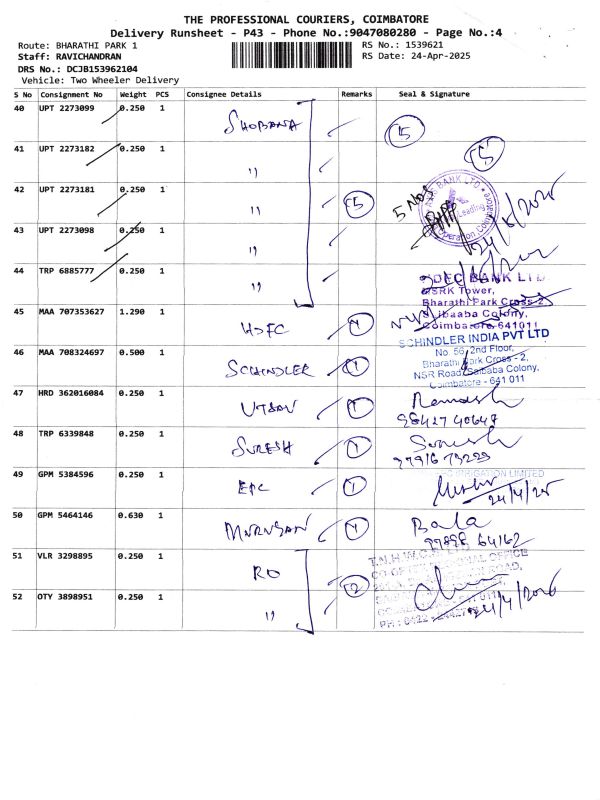 THE PROFESSIONAL COURIERS, COIMBATORE
Delivery Runsheet - P43 - Phone No.:9047080280 - Page No.:4
Route: BHARATHI PARK 1
RS No.: 1539621
Staff: RAVICHANDRAN
RS Date: 24-Apr-2025
DRS No.: DCJB153962104
Vehicle: Two Wheeler Delivery
S No Consignment No Weight PCS Consignee Details Remarks Seal & Signature
40 UPT 2273099 0.250 1 SHOBANA 5
41 UPT 2273182 0.250 1 " 5
42 UPT 2273181 0.250 1 " 5 5 Nos
BANK LTD
43 UPT 2273098 0.250 1 "
44 TRP 6885777 0.250 1 "
BANK LTD
SRK Tower,
Bharathi Park Cross-2
45 MAA 707353627 1.290 1 HDFC 1
Saibaaba Colony,
Coimbatore 641011
SCHINDLER INDIA PVT LTD
46 MAA 708324697 0.500 1 SCHINDLER 1
No. 56, 2nd Floor,
Bharathi Park Cross - 2,
NSR Road, Saibaba Colony,
Coimbatore - 641 011
47 HRD 362016084 0.250 1 1 Ramesh
98427 40647
48 TRP 6339848 0.250 1 SURESH 1 Suresh
49 GPM 5384596 0.250 1 EPC 1
IRRIGATION LIMITED
24/4/25
50 GPM 5464146 0.630 1 MURUGAN 1 Bala
99898 64162
51 VLR 3298895 0.250 1 RO 2
52 OTY 3898951 0.250 1 "
24/4/2025